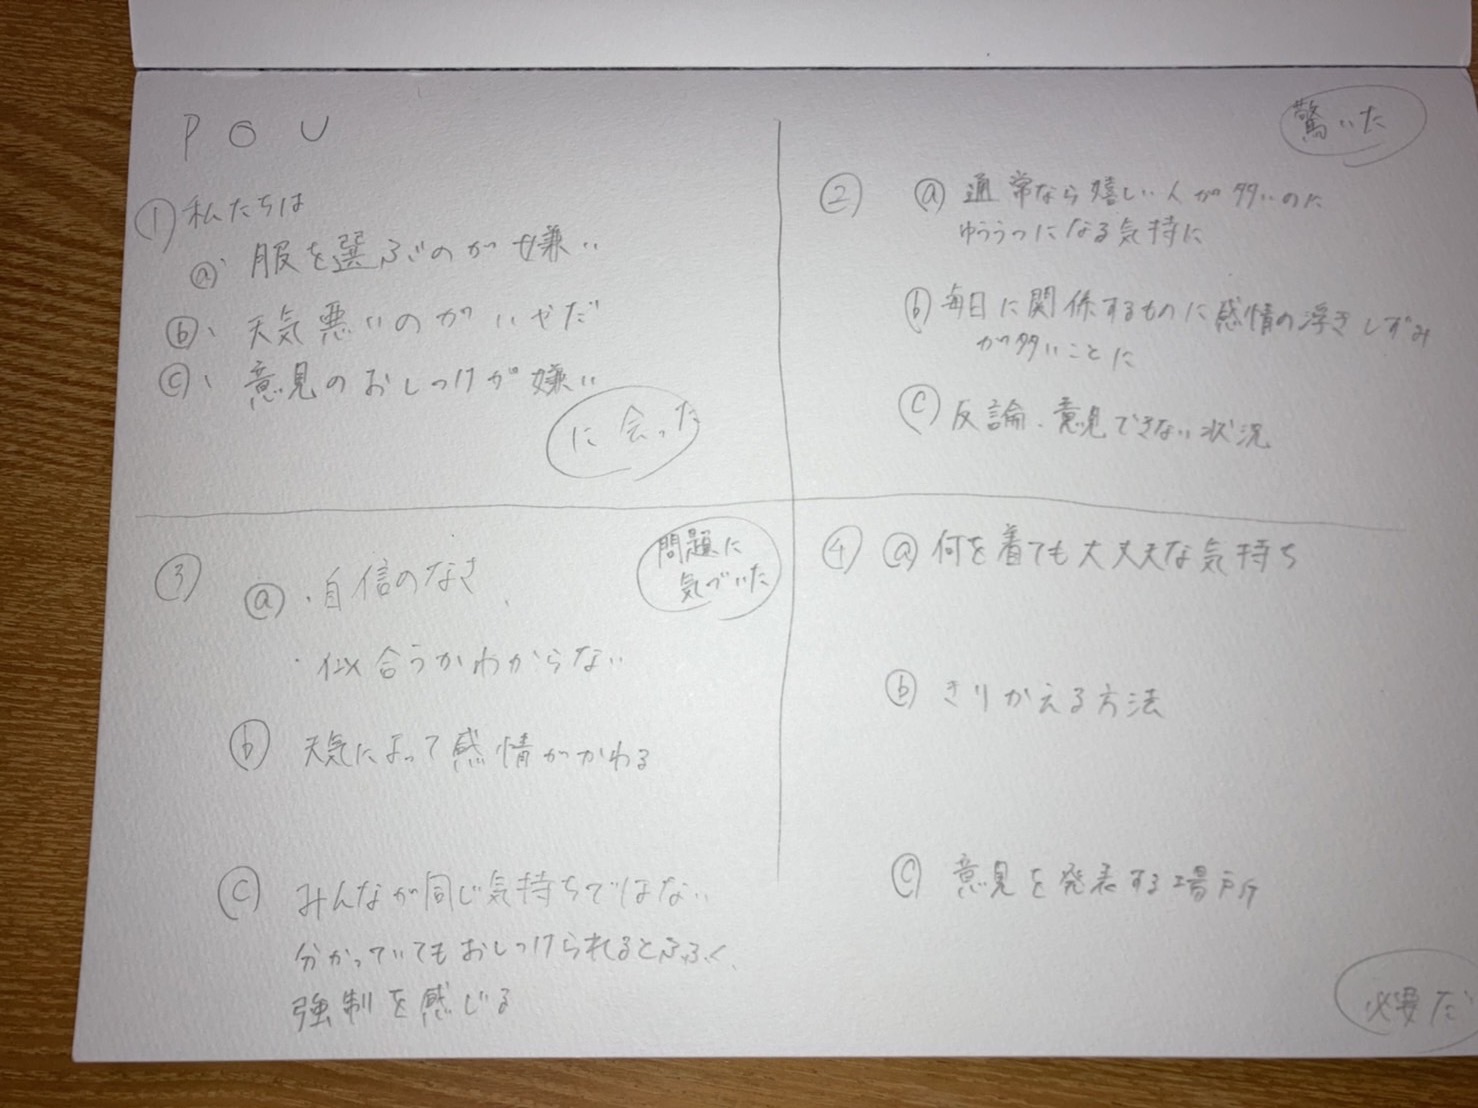 POU
① 私たちは
ⓐ、服を選ぶのが嫌い
ⓑ、天気悪いのがいやだ
ⓒ、意見のおしつけが嫌い
に会った
驚いた
② ⓐ 通常なら嬉しい人が多いのに
ゆううつになる気持に
ⓑ 毎日に関係するものに感情の浮きしずみ
が多いことに
ⓒ 反論、意見できない状況
問題に
気づいた
③ ⓐ ・自信のなさ
・似合うかわからない
ⓑ 天気によって感情がかわる
ⓒ みんなが同じ気持ちではない
分かっていてもおしつけられるとふふく、
強制を感じる
④ ⓐ 何を着ても大丈夫な気持ち
ⓑ きりかえる方法
ⓒ 意見を発表する場所
必要だ